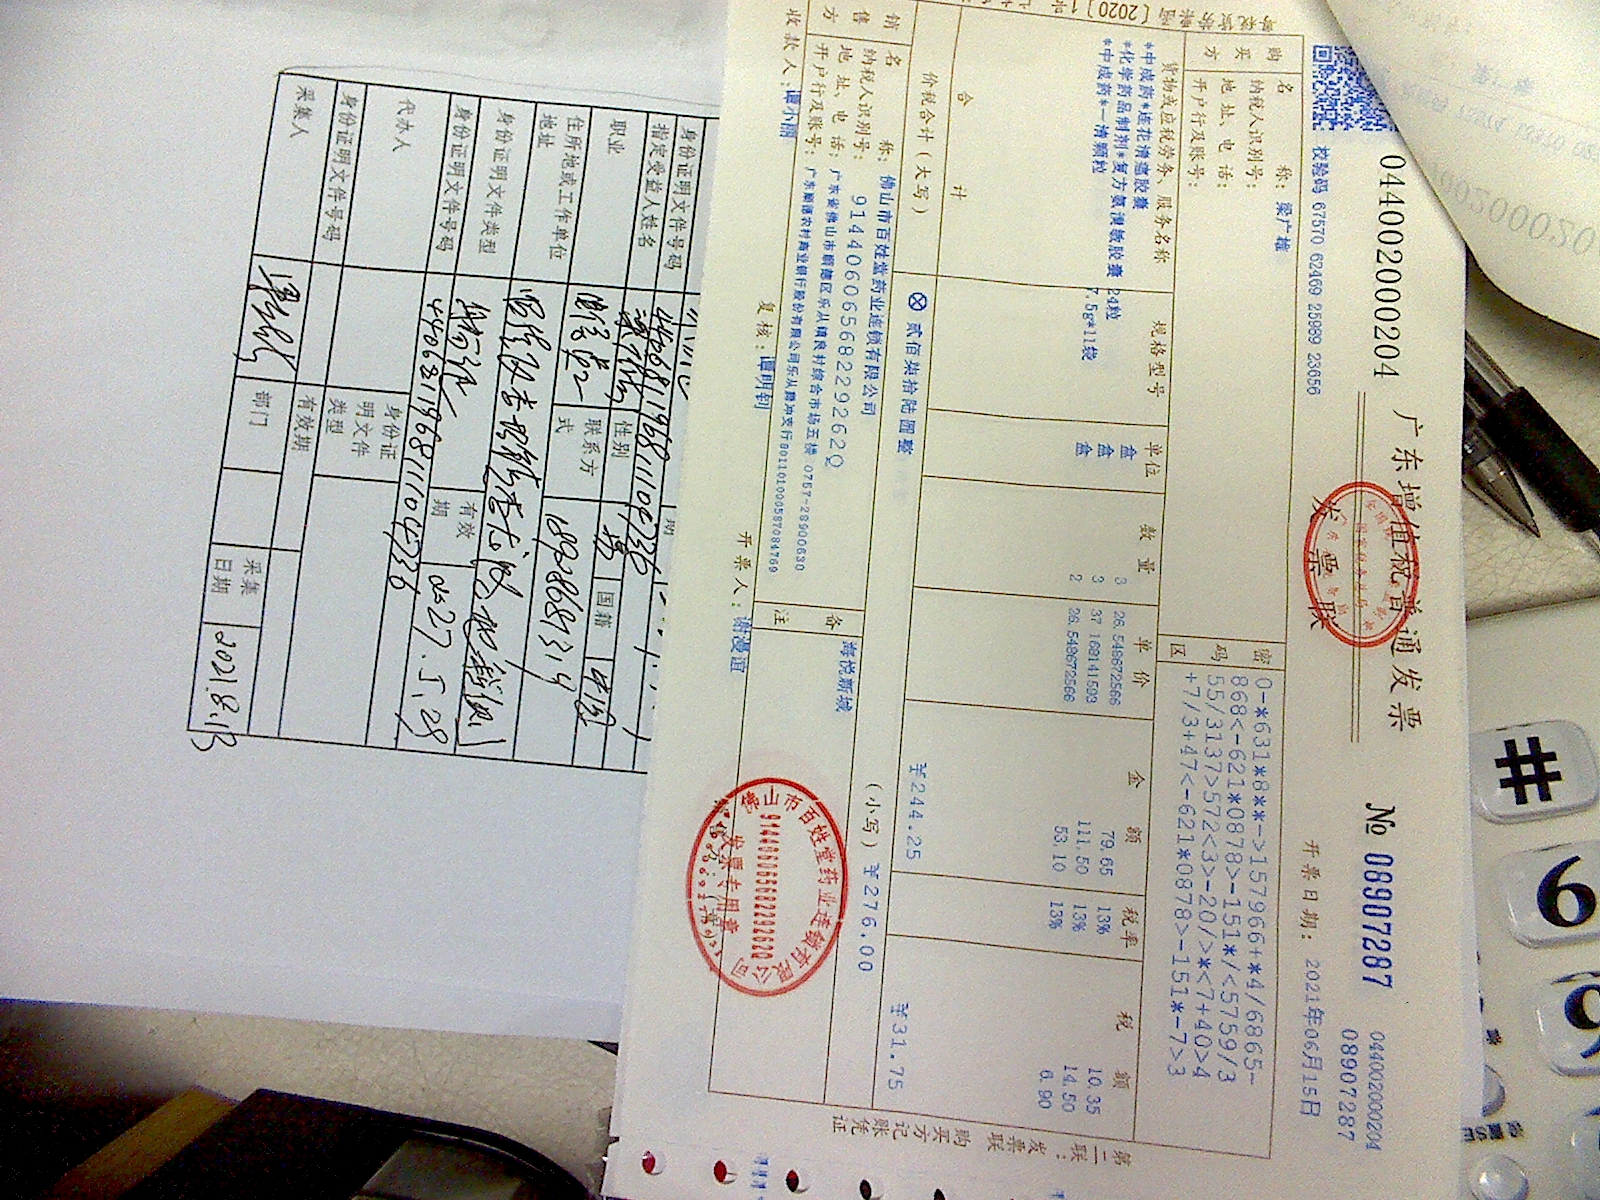 广东增值税普通发票
044002000204
№ 08907287
044002000204
08907287
发票联
国家税务总局
校验码 67570 62469 25989 23656
开票日期: 2021年06月15日
购买方
名 称: 梁广雄
纳税人识别号:
地址、电话:
开户行及账号:
密码区
0-*631*8**->157966+*4/6865-
868<-621*0878>-151*/<5759/3
55/3137>572<3>-20/>*<7+40>4
+7/3+47<-621*0878>-151*-7>3
货物或应税劳务、服务名称 规格型号 单位 数量 单价 金额 税率 税额
*中成药*连花清瘟胶囊 盒 3 26.548672566 79.65 13% 10.35
*化学药品制剂*复方氨溴敏胶囊 24粒 盒 3 37.168141593 111.50 13% 14.50
*中成药*一清颗粒 7.5g*11袋 盒 2 26.548672566 53.10 13% 6.90
合计 ¥244.25 ¥31.75
价税合计(大写) ⊗ 贰佰柒拾陆圆整 (小写) ¥276.00
销售方
名 称: 佛山市百姓堂药业连锁有限公司
纳税人识别号: 91440606568229262Q
地址、电话: 广东省佛山市顺德区乐从镇良村综合市场五楼 0757-28900630
开户行及账号: 广东顺德农村商业银行股份有限公司乐从腾冲支行801101000587084769
备注
海悦新城
收款人: 谭小丽
复核: 谭明钊
开票人: 谢漫谊
佛山市百姓堂药业连锁有限公司
91440606568229262Q
发票专用章
第二联: 发票联 购买方记账凭证
身份证明文件号码 440681196811104736
指定受益人姓名 性别 男 国籍 中国
职业 联系方式 18928681314
住所地或工作单位地址
身份证明文件类型 身份证 有效期 2027.5.29
身份证明文件号码 440681196811104736
代办人 身份证明文件类型
身份证明文件号码 有效期
采集人 部门 采集日期 2021.8.13
# 9